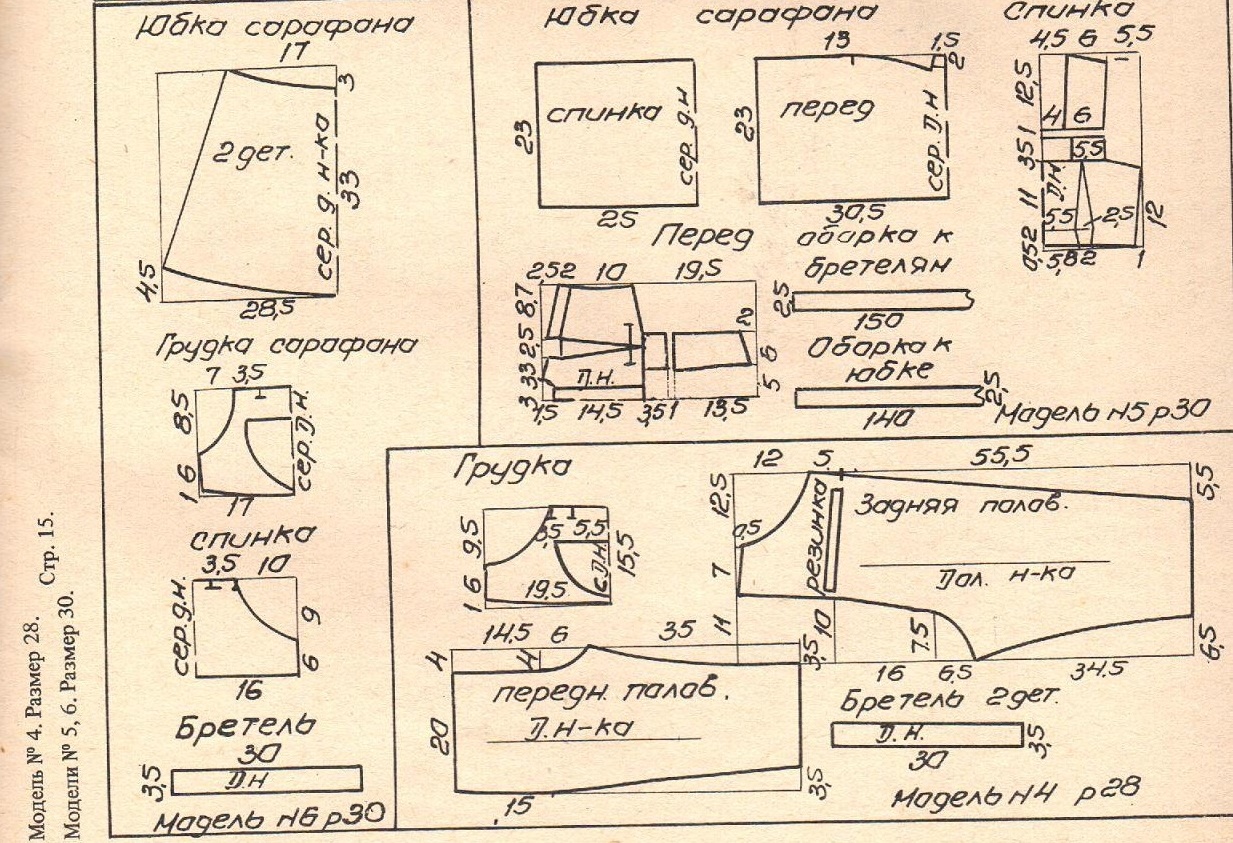 Модель № 4. Размер 28. Стр. 15.
Модели № 5, 6. Размер 30.
Юбка сарафана
17
3
2 дет.
сер. д. н-ка
33
4,5
28,5
Грудка сарафана
7 3,5
8,5
сер. Д.Н.
1 6
17
спинка
3,5 10
сер.д.н.
9
6
16
Бретель
30
3,5
Д.Н
Мадель N6 р30
Юбка сарафана
13 1,5
2
спинка
23
сер. д.н
25
перед
23
сер. Д.Н
30,5
Спинка
4,5 6 5,5
12,5
4 6
3 5 1
5,5
Д.Н.
11
5,5 2,5
12
0,5 2
1
Перед
2,5 2 10 19,5
8,7
2,5
3 3
3
Д.Н.
2
6
5
1,5 14,5 3,5 1 13,5
оборка к
бретелям
2,5
150
Оборка к
юбке
2,5
140
Мадель N5 р30
Грудка
9,5
3,5 5,5
с.Д.Н.
15,5
1 6
19,5
12 5 55,5
12,5
5,5
0,5
резинка
Задняя полав.
7
Дол. н-ка
11
10
7.5
6,5
16 6,5 34.5
14,5 6 35
4
4
3,5
передн. палав.
Д.Н-ка
20
3,5
15
Бретель 2 дет.
Д.Н.
3,5
30
Мадель N4 р28